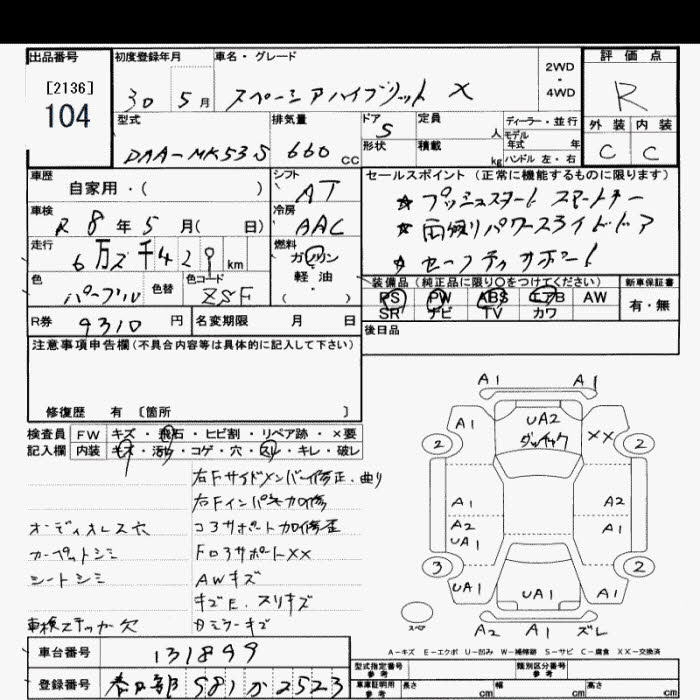 出品番号 初度登録年月 車名・グレード 2WD・4WD 評価点
[2136]
104
30 5月 スペーシアハイブリット X R
型式 排気量 ドア 定員 人 ディーラー・並行 外装 内装
DAA-MK53S 660 cc 5 形状 積載 kg モデル年式 年 ハンドル 左・右 C C
車歴 自家用・( ) シフト AT セールスポイント (正常に機能するものに限ります)
車検 R8年5月( 日) 冷房 AAC ★プッシュスタート スマートキー
★両側パワースライドドア
走行 6万 千42 km 燃料 ガソリン・軽油・( ) ★セーフティサポート
色 パープル 色替 色コード ZSF
装備品 (純正品に限り○をつけてください) 新車保証書
PS PW ABS エアB AW 有・無
SR ナビ TV カワ
R券 9310円 名変期限 月 日 後日品
注意事項申告欄(不具合内容等は具体的に記入して下さい)
修復歴 有 〔箇所 〕
検査員記入欄 FW キズ・飛石・ヒビ割・リペア跡・×要
内装 キズ・汚れ・コゲ・穴・スレ・キレ・破レ
右Fサイドメンバー修正、曲り
右Fインパネ加修
オーディオレス欠 コアサポート加修歪
カーペットシミ Fロアサポート××
シートシミ AWキズ
キズE、スリキズ
車検ステッカー欠
A1 A1
A1 UA2 ××
2 2
A1 A2
A2 A1
UA1
3 2
UA1 UA1 A1
スペア
A2 A1 ズレ
A-キズ E-エクボ U-凹み W-補修跡 S-サビ C-腐食 ××-交換済
車台番号 131899
登録番号 春日部 581 か 2523
型式指定番号 参考 類別区分番号 参考
車庫証明用 参考 長さ cm 幅 cm 高さ cm